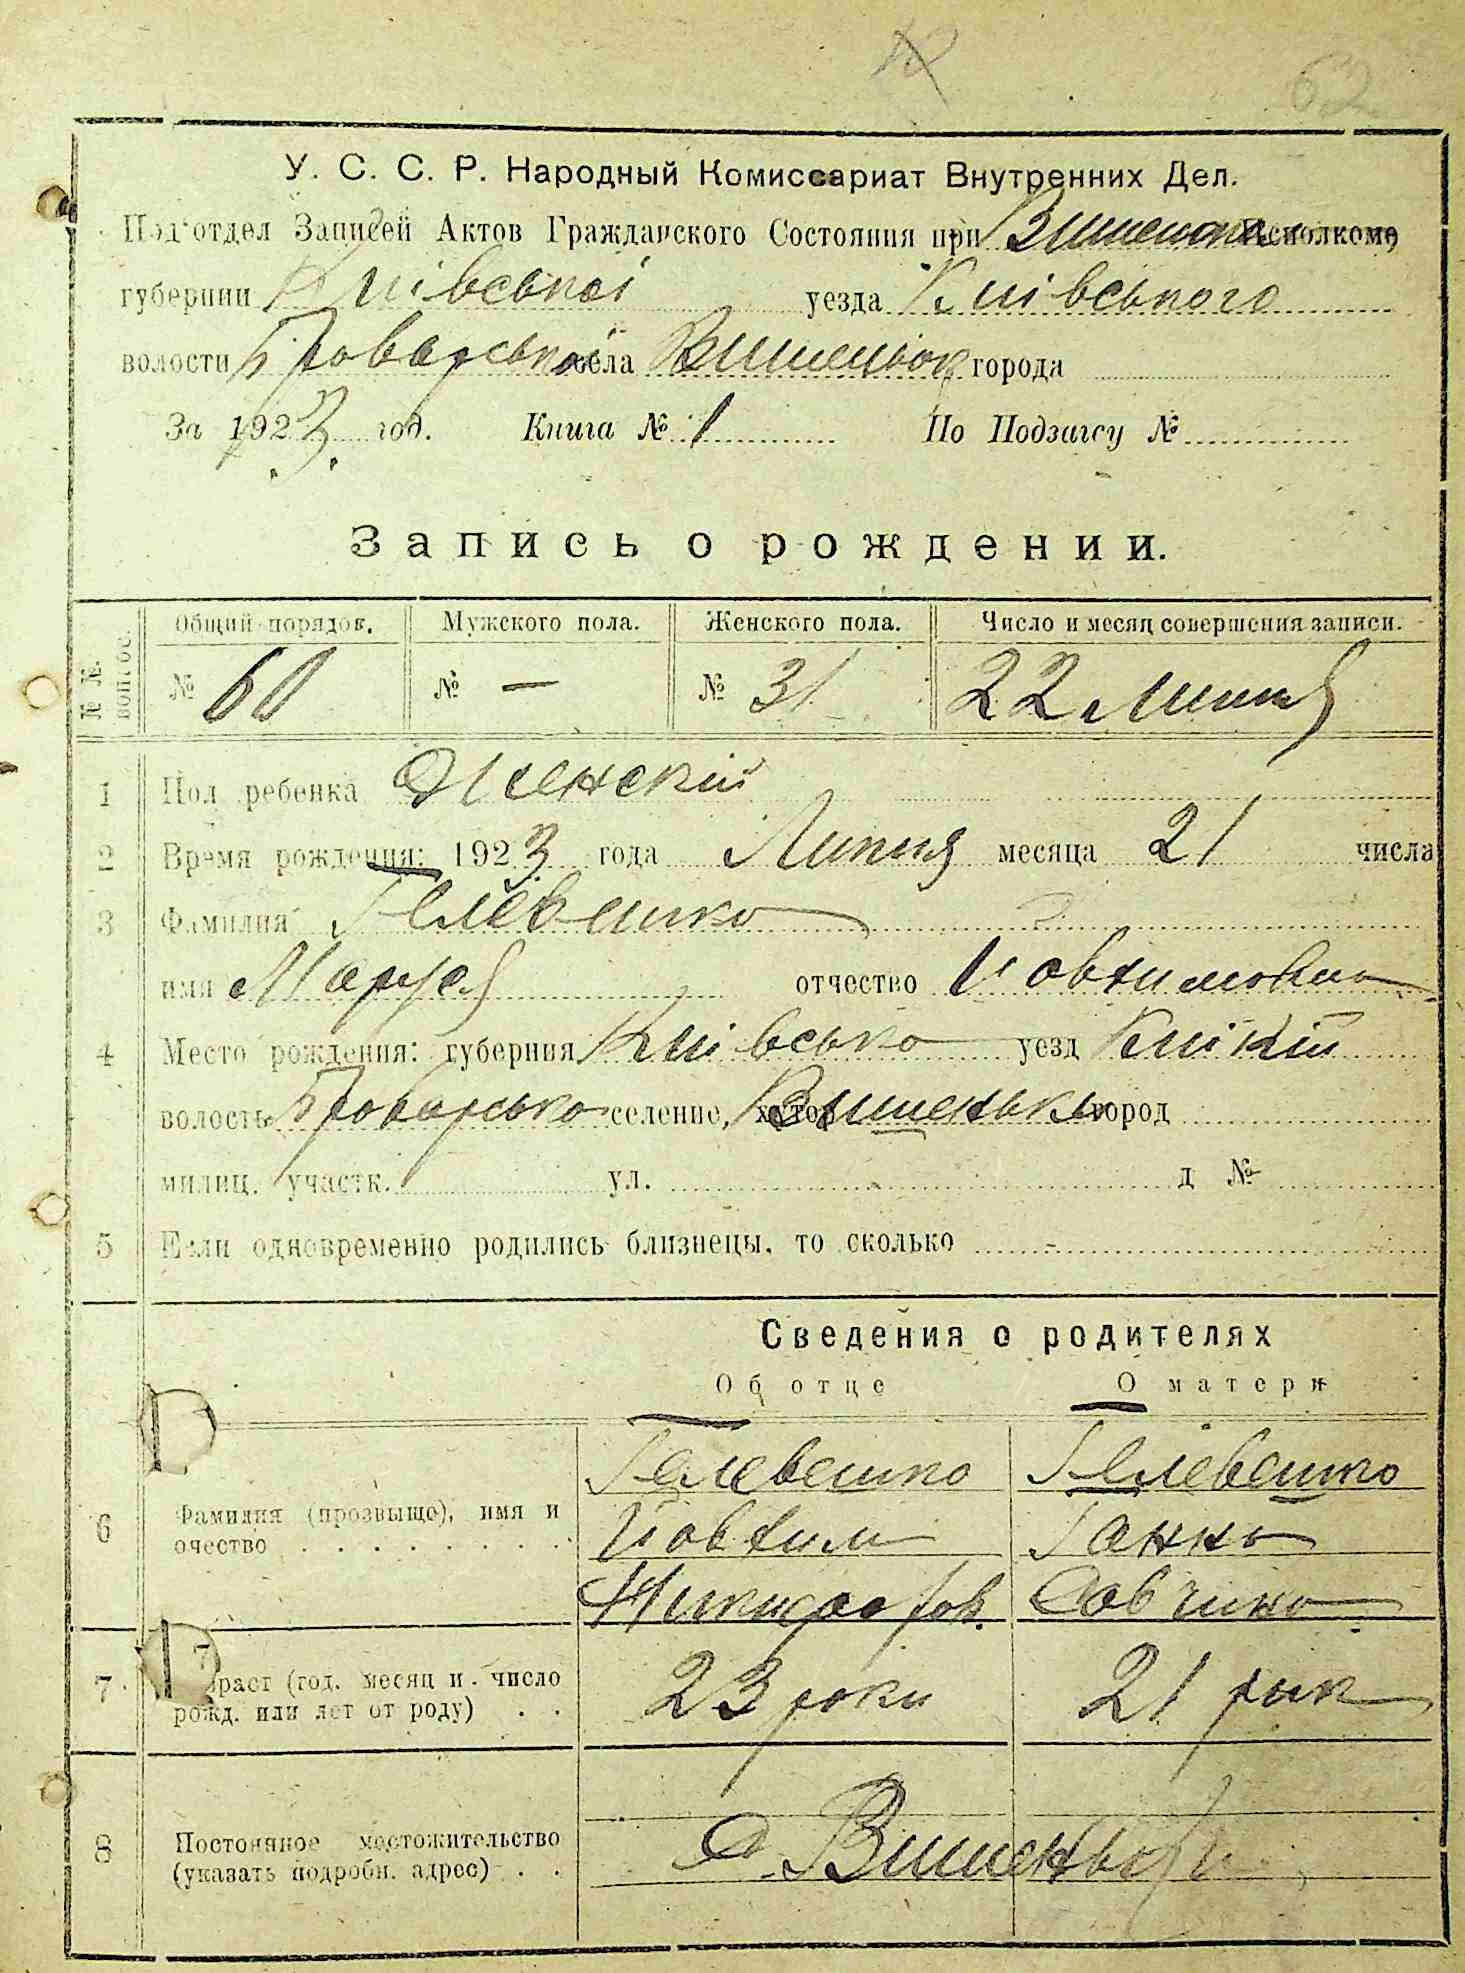 62
У. С. С. Р. Народный Комиссариат Внутренних Дел.
Под'отдел Записей Актов Гражданского Состояния при Исполкоме
губернии Київської уезда Київського
волости Броварської села Вишеньок города
За 1923 год. Книга № 1 По Подзагсу №
Запись о рождении.
№ № вопрос. Общий порядов. Мужского пола. Женского пола. Число и месяц совершения записи.
№ 60 № — № 31 22 Липня
1 Пол ребенка Женскій
2 Время рождения: 1923 года Липня месяца 21 числа
3 Фамилия Гелевешко
имя Маруся отчество Иовхимовна
4 Место рождения: губерния Київська уезд
волость Броварська селение, хутор Вишеньки город
милиц. участк. ул. д №
5 Если одновременно родились близнецы, то сколько -
Сведения о родителях
Об отце О матери
6 Фамилия (прозвыще), имя и очество
Гелевешко Гелевешко
Иовхим Ганна
Никифоров. Савчина
7 Возраст (год, месяц и число рожд. или лет от роду) 23 роки 21 рик
8 Постоянное местожительство (указать подробн. адрес)
с. Вишеньки